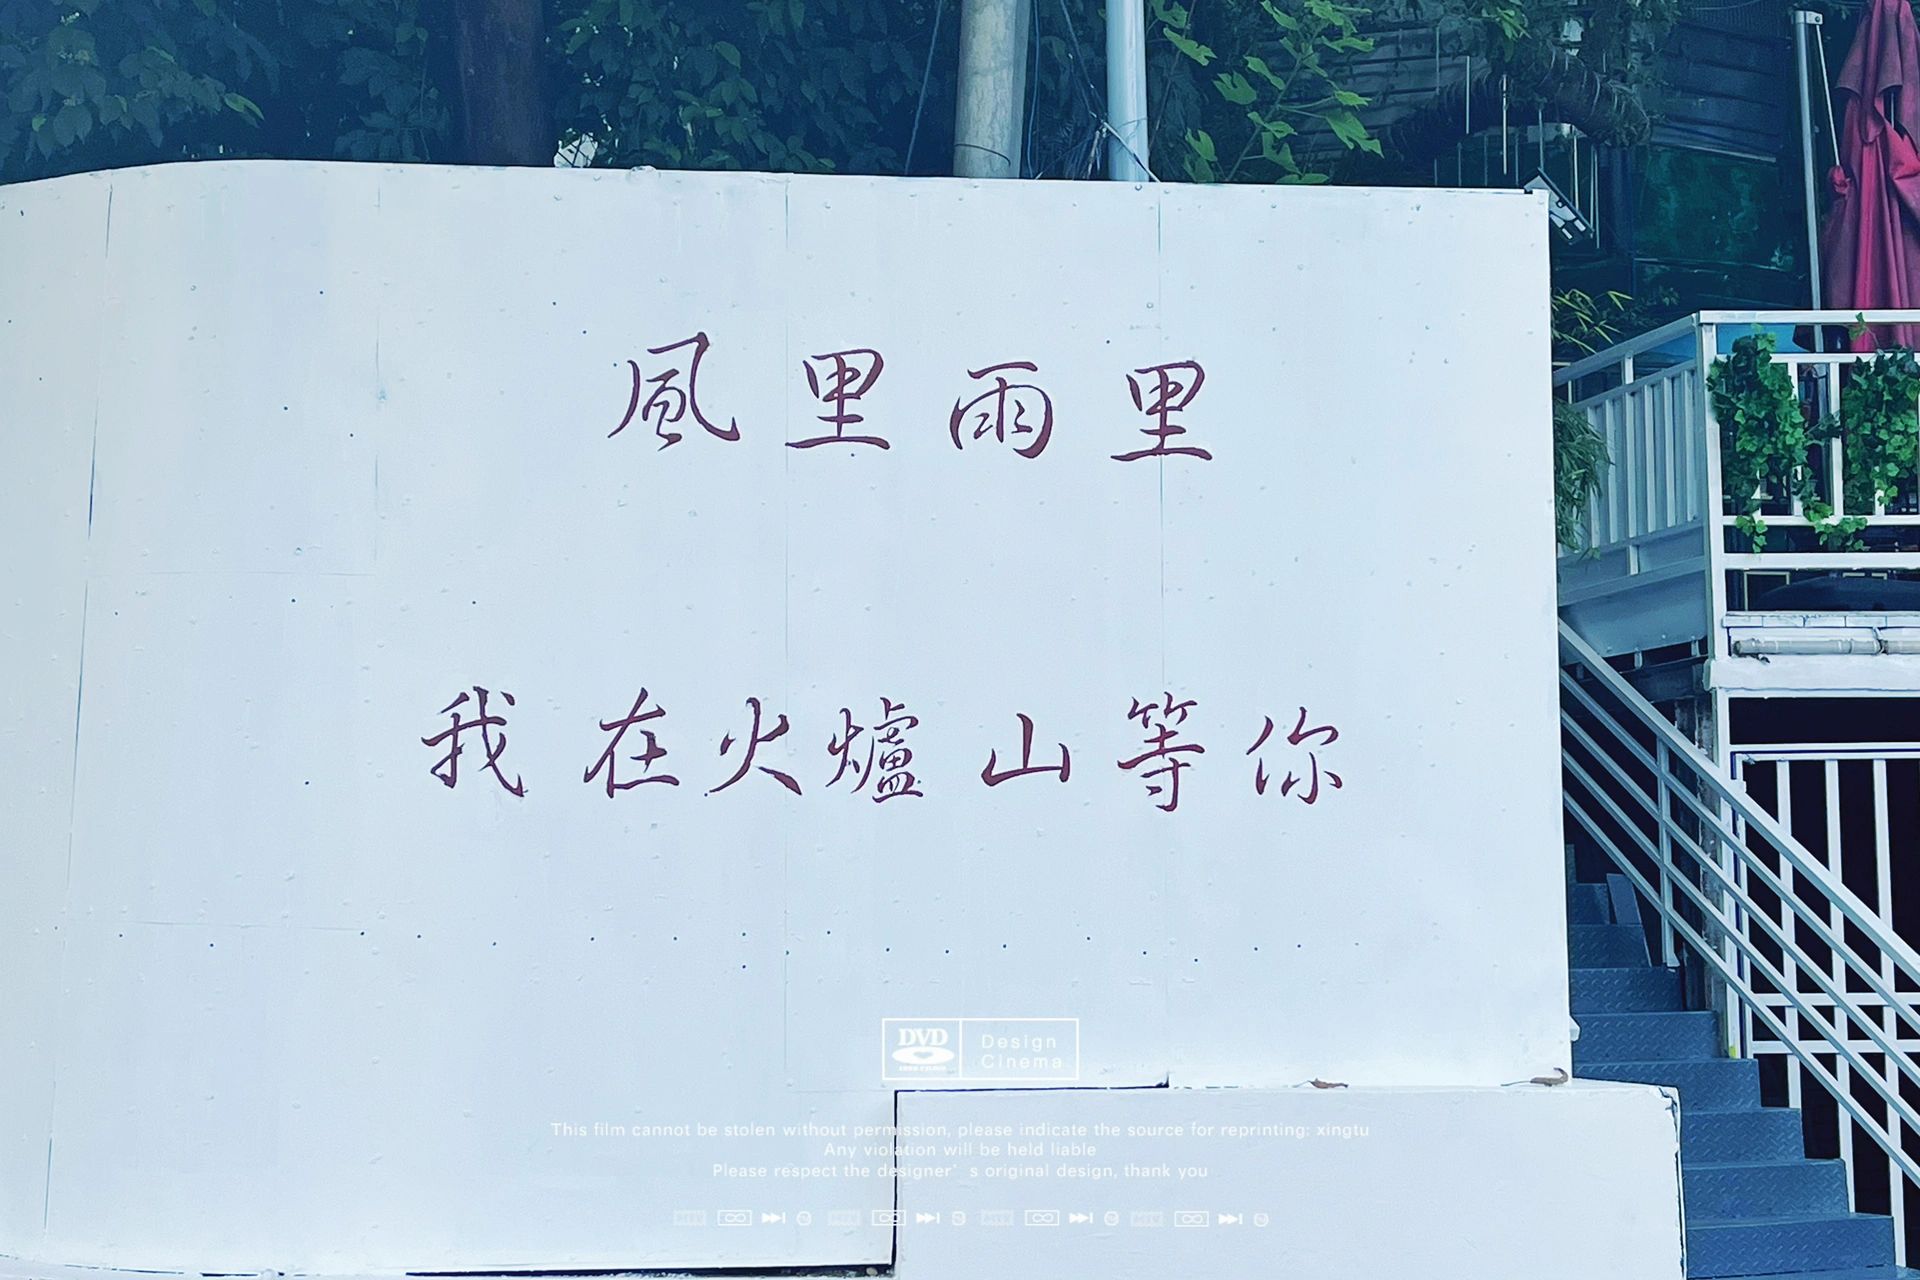 風里雨里
我在火爐山等你
DVD
Design
Cinema
This film cannot be stolen without permission, please indicate the source for reprinting: xingtu
Any violation will be held liable
Please respect the designer's original design, thank you